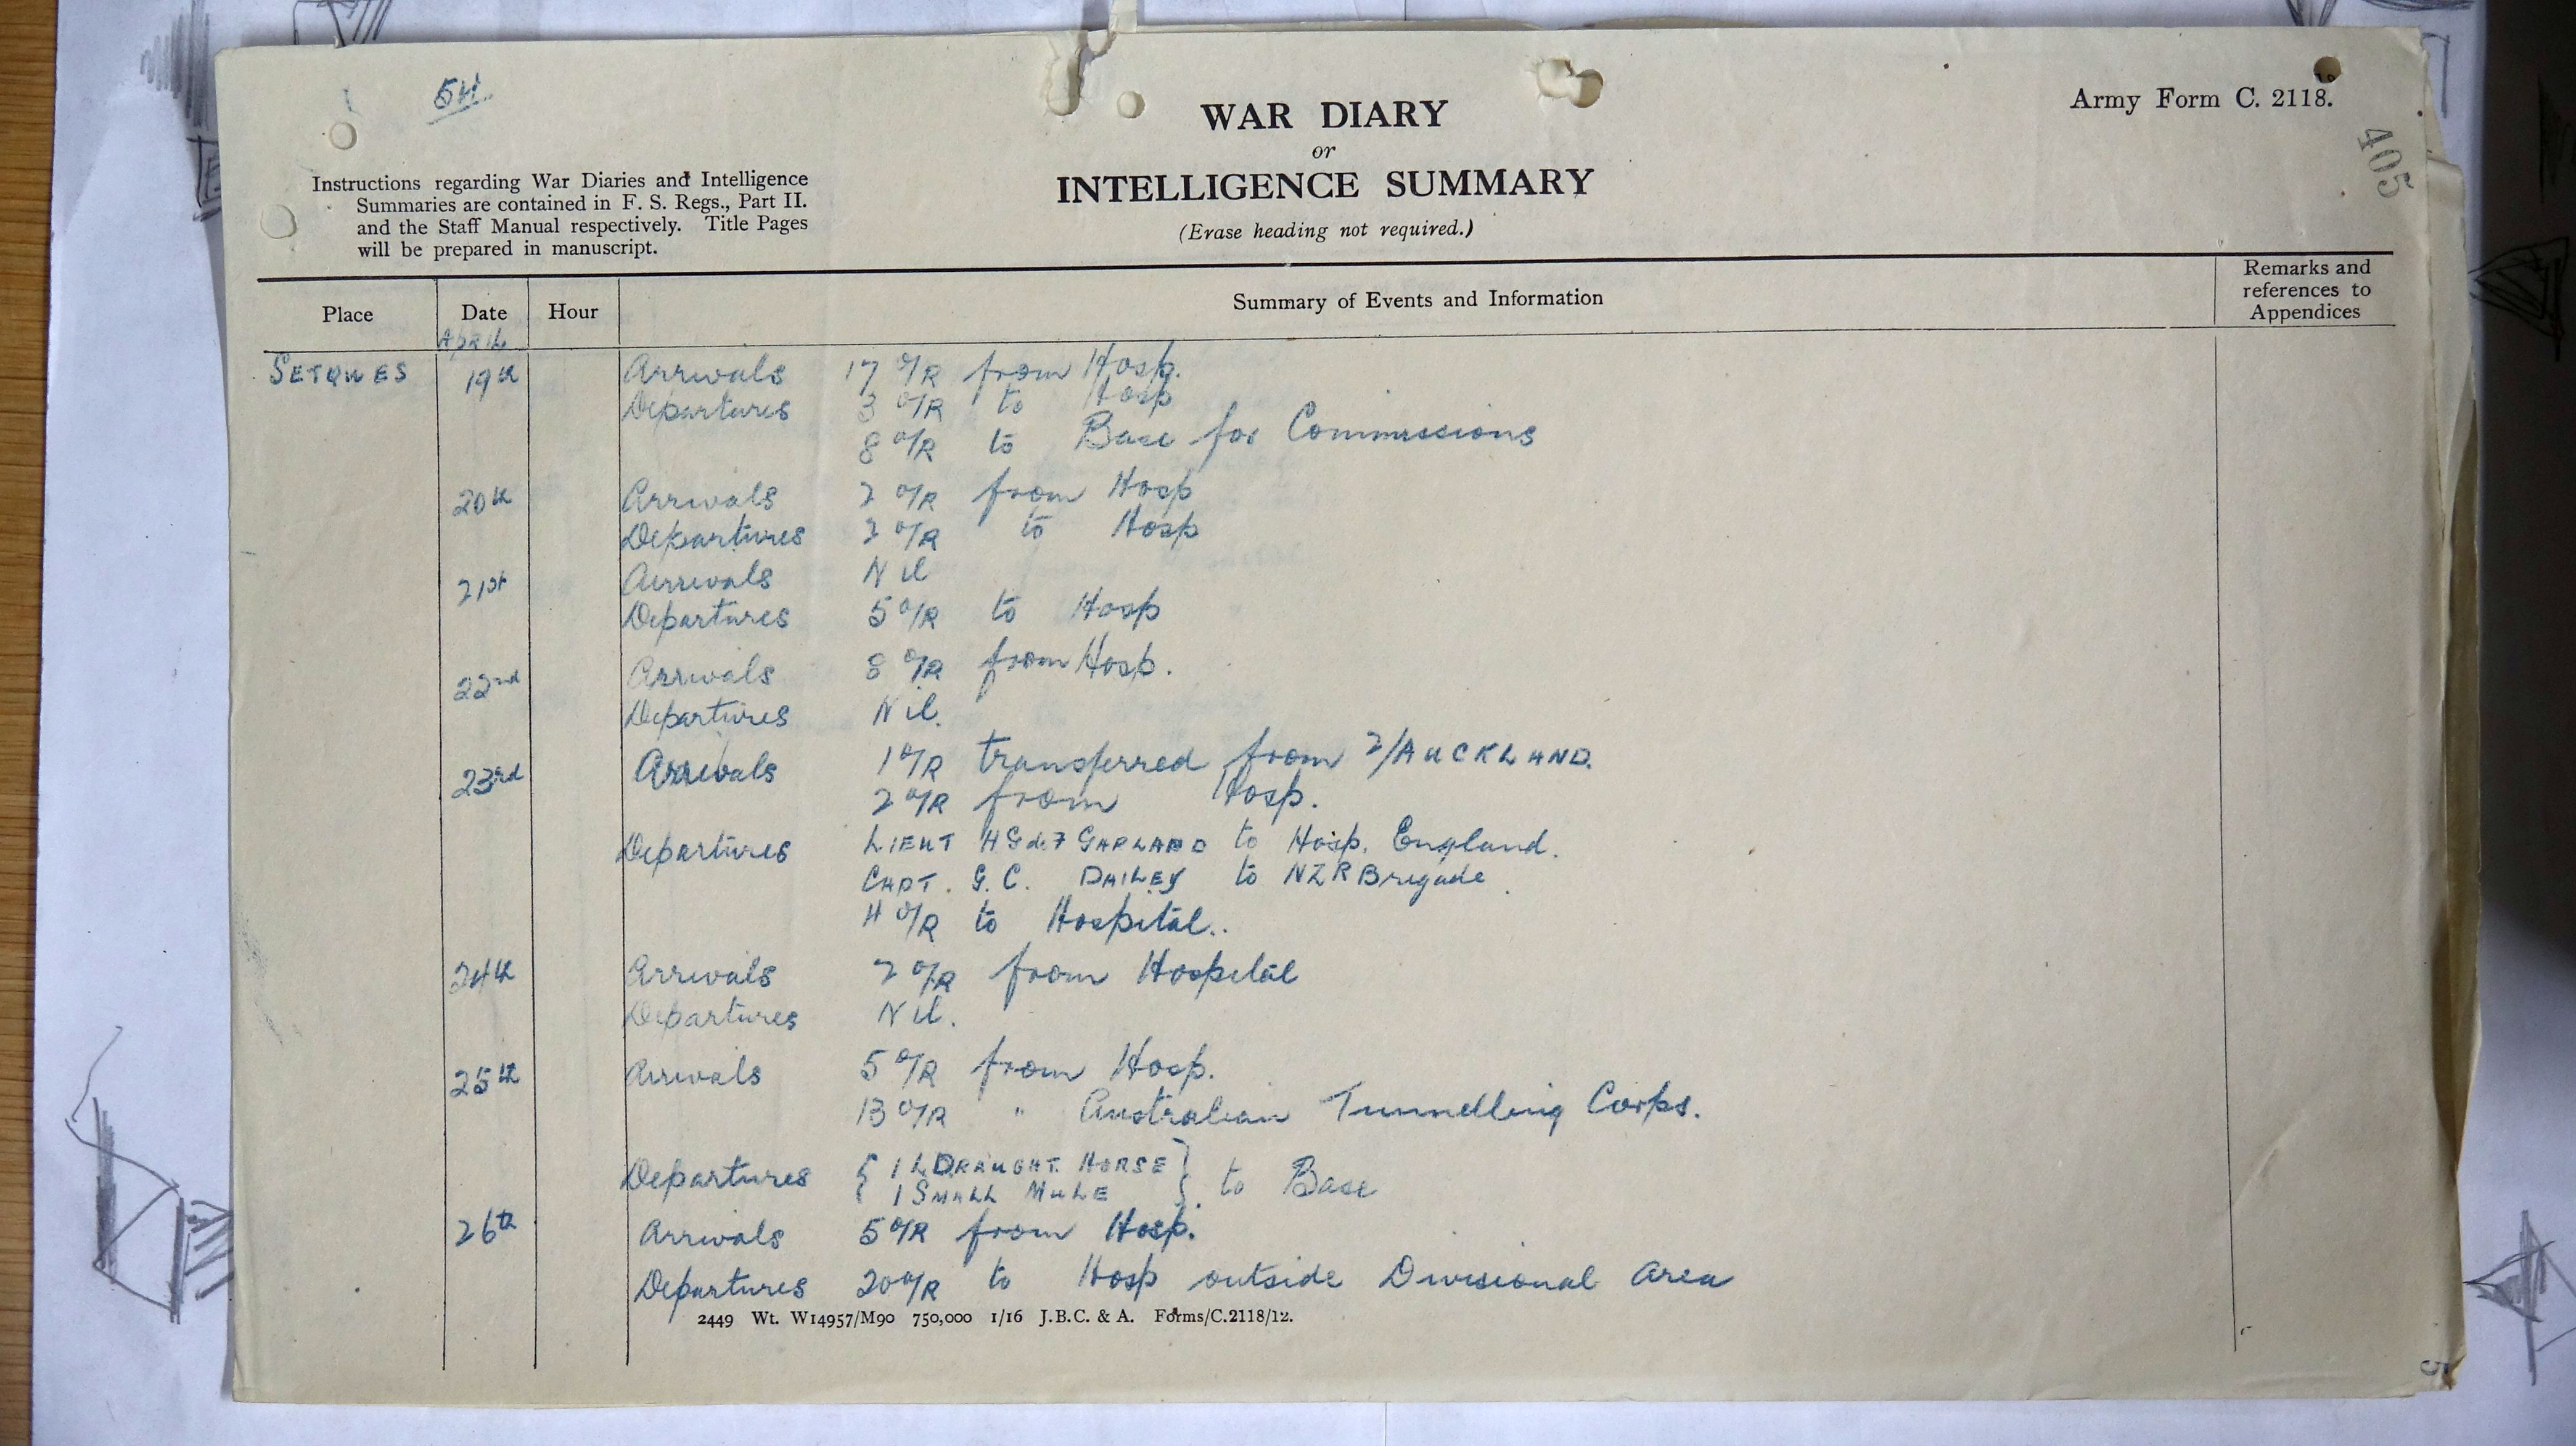 54.
WAR DIARY
or
INTELLIGENCE SUMMARY
(Erase heading not required.)
Army Form C. 2118.
405
Instructions regarding War Diaries and Intelligence
Summaries are contained in F. S. Regs., Part II.
and the Staff Manual respectively. Title Pages
will be prepared in manuscript.
Place Date Hour Summary of Events and Information Remarks and references to Appendices
APRIL
SETQUES 19th Arrivals 17 O/R from Hosp.
Departures 3 O/R to Hosp
8 O/R to Base for Commissions
20th Arrivals 2 O/R from Hosp
Departures 2 O/R to Hosp
21st Arrivals Nil
Departures 5 O/R to Hosp
22nd Arrivals 8 O/R from Hosp.
Departures Nil.
23rd Arrivals 1 O/R transferred from 2/AUCKLAND.
2 O/R from Hosp.
Departures LIEUT GARLAND to Hosp. England.
CAPT. G. C. DAILEY to NZR Brigade.
4 O/R to Hospital..
24th Arrivals 2 O/R from Hospital
Departures Nil.
25th Arrivals 5 O/R from Hosp.
13 O/R " Australian Tunnelling Corps.
Departures { 1 L DRAUGHT HORSE }
{ 1 SMALL MULE } to Base
26th Arrivals 5 O/R from Hosp.
Departures 20 O/R to Hosp outside Divisional Area
2449 Wt. W14957/M90 750,000 1/16 J.B.C. & A. Forms/C.2118/12.
5